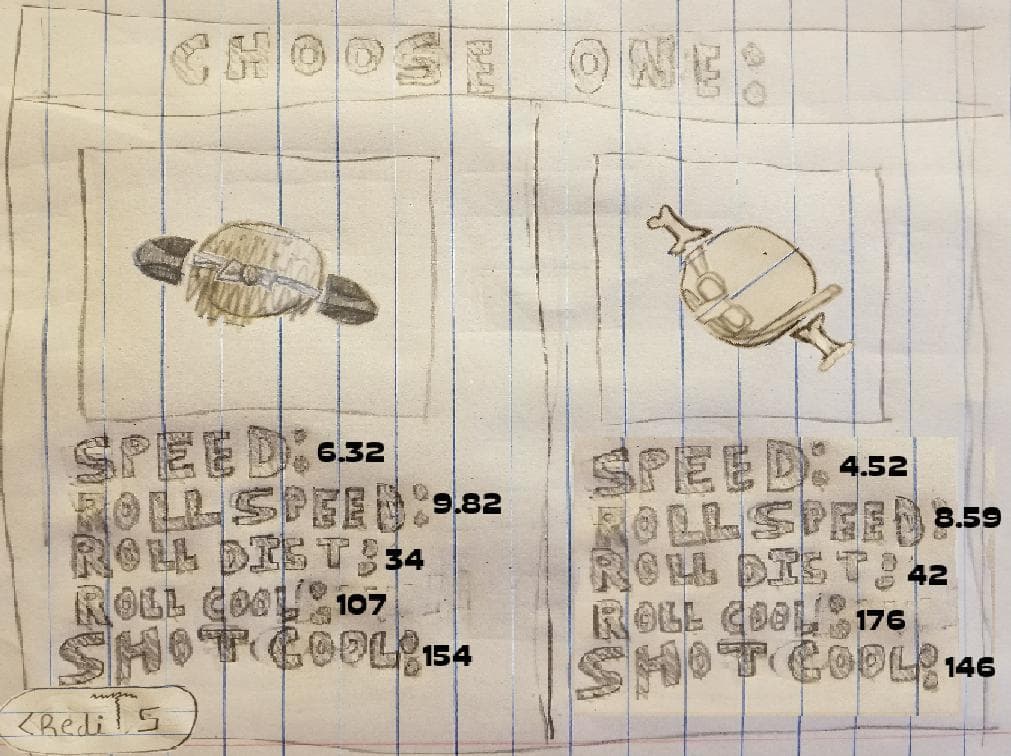 CHOOSE ONE:
SPEED: 6.32
ROLL SPEED: 9.82
ROLL DIST: 34
ROLL COOL: 107
SHOT COOL: 154
SPEED: 4.52
ROLL SPEED: 8.59
ROLL DIST: 42
ROLL COOL: 176
SHOT COOL: 146
CRediTS